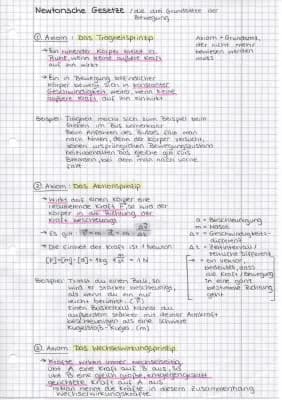 Newtonsche Gesetze / die drei Grundsätze der Bewegung
① Axiom: Das Trägheitsprinzip
→ Ein ruhender Körper bleibt in
Ruhe, wenn keine äußere Kraft
auf ihn wirkt
Axiom = Grundsatz,
der nicht mehr
bewiesen werden
muss
→ Ein in Bewegung befindlicher
Körper bewegt sich in konstanter
Geschwindigkeit weiter, wenn keine
äußere Kraft auf ihn einwirkt
Beispiel: Trägheit macht sich zum Beispiel beim
Fahren im Bus bemerkbar
Beim Anfahren des Busses fällt man
nach hinten, denn der Körper versucht,
seinen ursprünglichen Bewegungszustand
beizubehalten. Das gleiche gilt fürs
Bremsen, bei dem man nach vorne
fällt
② Axiom: Das Aktionsprinzip
→ Wirkt auf einen Körper eine
resultierende Kraft F, so wird der
Körper in die Richtung der
Kraft beschleunigt
→ Es gilt: F = m · a = m · Δv/Δt
→ Die Einheit der Kraft ist 1 Newton
[F] = [m] · [a] = 1kg · m/s² = 1 N
a = Beschleunigung
m = Masse
Δv = Geschwindigkeits-
differenz
Δt = Zeitintervall /
zeitliche Differenz
→ = ein Vektor
bedeutet, dass
die Kraft / Bewegung
in eine ganz
bestimmte Richtung
geht
Beispiel: Trittst du einen Ball, so
wird er stärker beschleunigt,
als wenn du ihn nur
leicht berührst. (F)
Einen Basketball kannst du
außerdem stärker mit deiner Armkraft
beschleunigen als eine schwere
Kugelstoß-Kugel. (m)
③ Axiom: Das Wechselwirkungsprinzip
→ Kräfte wirken immer wechselseitig
Übt A eine Kraft auf B aus, so
übt B eine gleich große, entgegengesetzt
gerichtete Kraft auf A aus
→ Man nennt die Kräfte in diesem Zusammenhang
Wechselwirkungskräfte